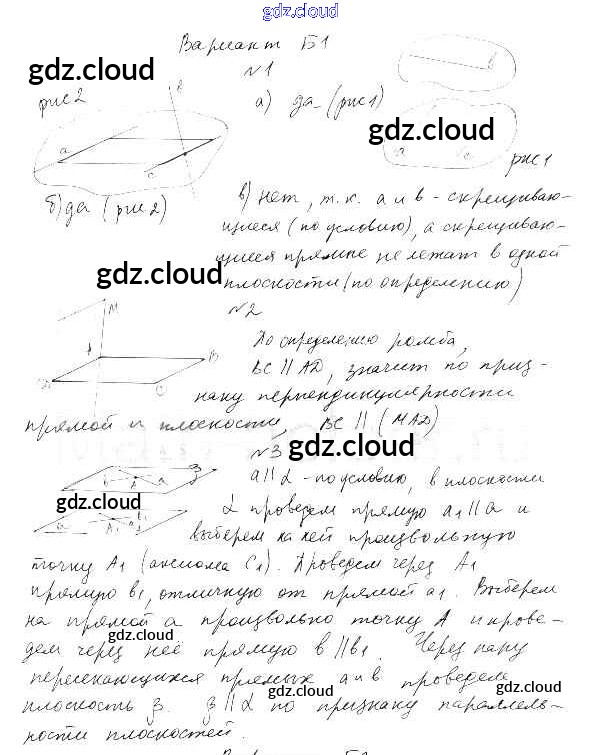 gdz.cloud
Вариант Б1
№1
gdz.cloud
рис2
а) да (рис1)
gdz.cloud
рис1
б) да (рис2)
в) нет, т.к. a и b - скрещиваю-
щиеся (по условию), а скрещиваю-
щиеся прямые не лежат в одной
gdz.cloud
плоскости (по определению)
№2
M
По определению ромба,
BC || AD, значит по приз-
наку перпендикулярности
прямой и плоскости, BC || (MAD)
№3
gdz.cloud
a || α - по условию, в плоскости
gdz.cloud
α проведем прямую a1 || a и
выберем на ней произвольную
точку A1 (аксиома C1). Проведем через A1
прямую b1, отличную от прямой a1. Выберем
на прямой a произвольно точку A и прове-
gdz.cloud
дем через неё прямую b || b1. Через пару
gdz.cloud
пересекающихся прямых a и b проведем
gdz.cloud
плоскость β. β || α по признаку параллель-
gdz.cloud
ности плоскостей.